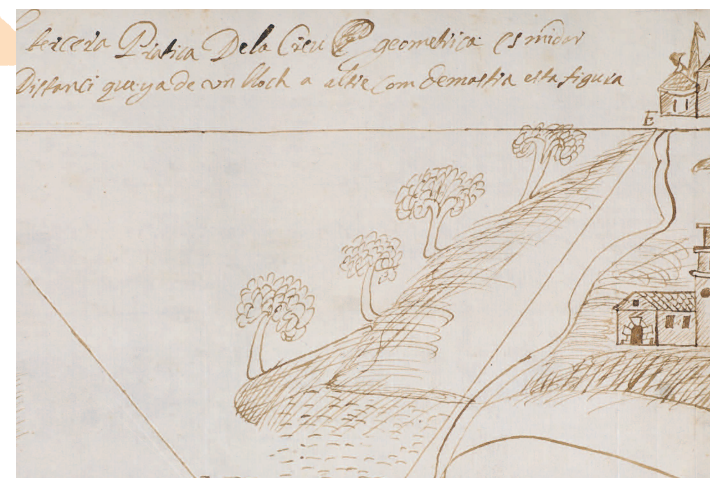 tercera Pratica Dela Creu geometrica es midar
Distanci que ya de un lloch a altre Com demostra esta figura
E